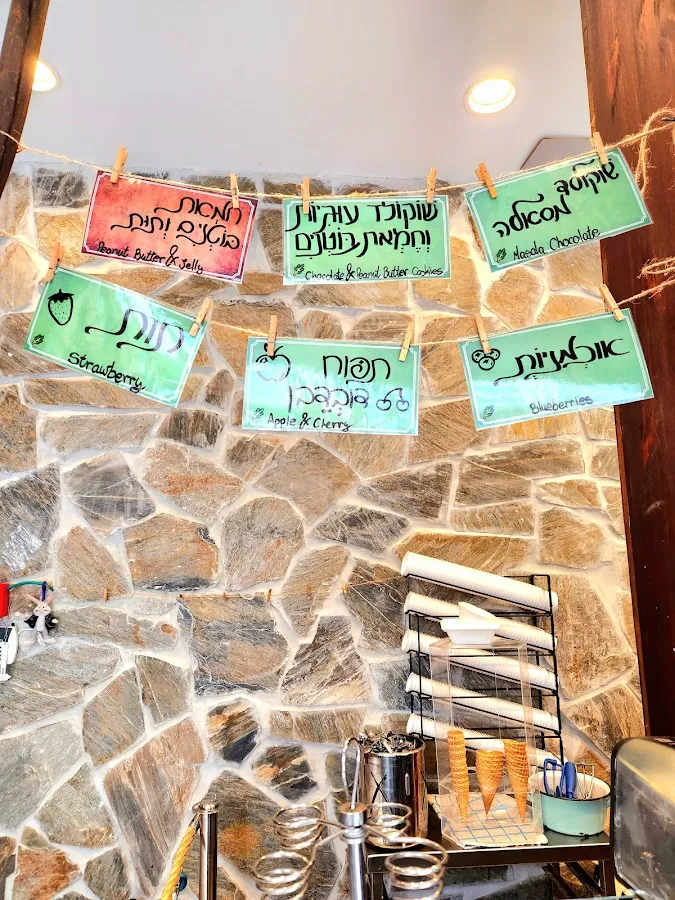 חמאת
בוטנים ותות
Peanut Butter & Jelly
שוקולד עוגיות
וחמאת בוטנים
Chocolate & Peanut Butter Cookies
שוקולד
מסאלה
Masala Chocolate
תות
Strawberry
תפוח
דובדבן
Apple & Cherry
אוכמניות
Blueberries